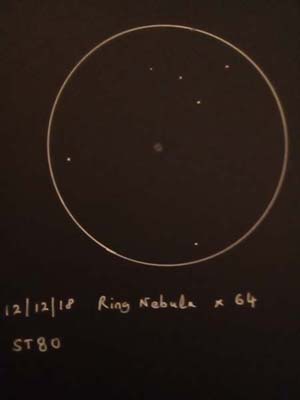 12/12/18 Ring Nebula x 64
ST80